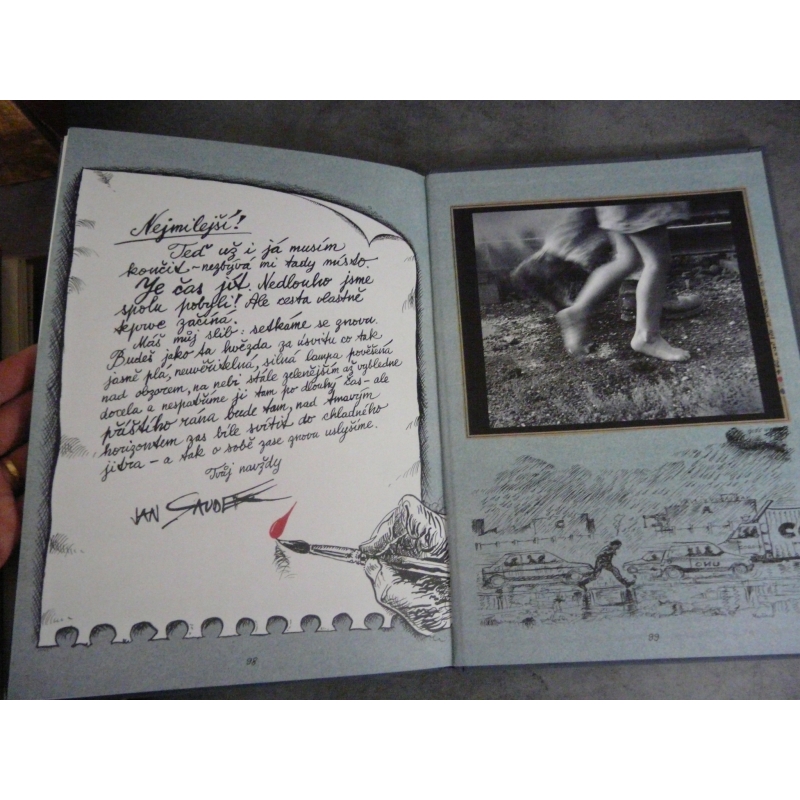 Nejmilejší!
Teď už i já musím
končit – nezbývá mi tady místo.
Je čas jít. Nedlouho jsme
spolu pobyli! Ale cesta vlastně
teprve začíná.
Máš můj slib: setkáme se znova.
Budeš jako ta hvězda za úsvitu co tak
jasně plá, neuvěřitelná, silná lampa pověšená
nad obzorem, na nebi stále zelenějším až vybledne
docela a nespatříme ji tam po dlouhý čas – ale
příštího rána bude tam, nad tmavým
horizontem zas bíle svítit do chladného
jitra – a tak o sobě zase znovu uslyšíme.
Tvůj navždy
JAN SAUDEK
98
99